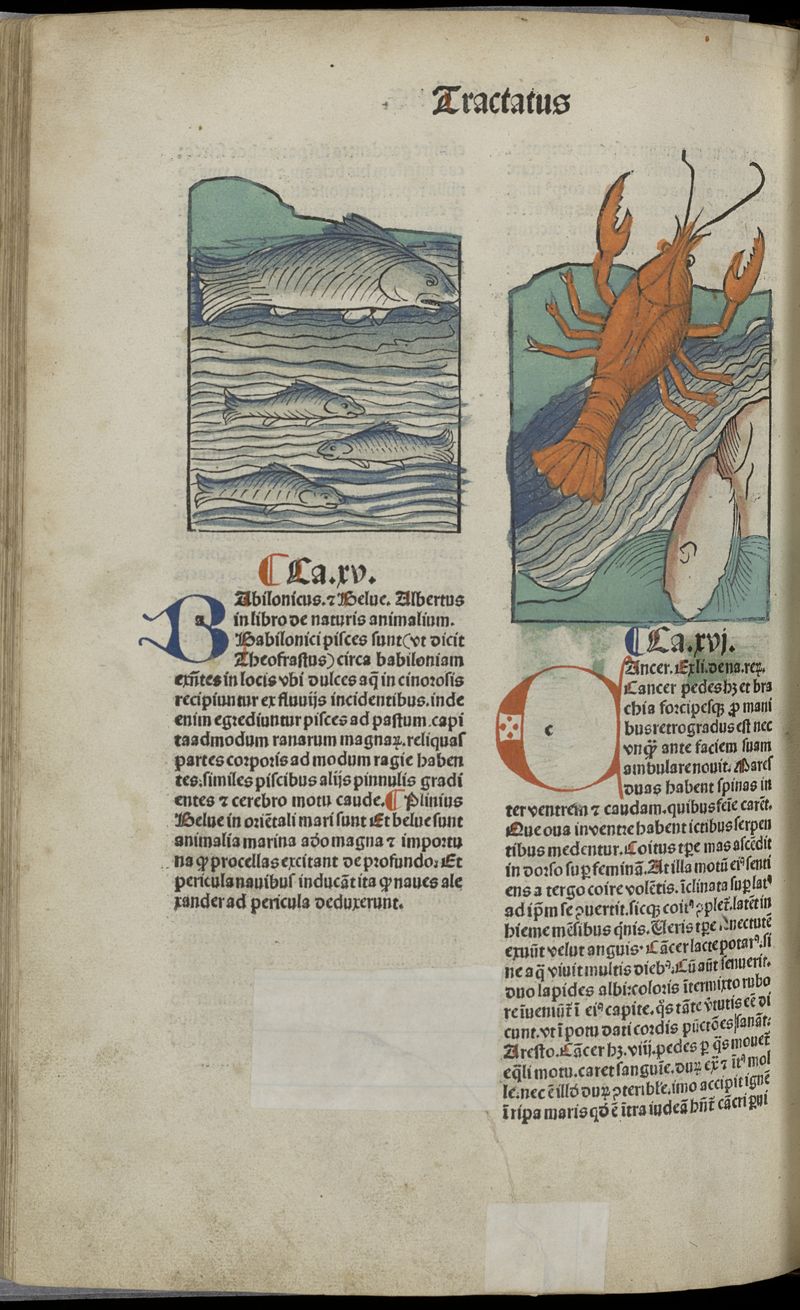 Tractatus
¶ Ca.xv.
BAbilonicus.⁊ Belue. Albertus
a
in libro de naturis animalium.
Babilonici pisces sunt(vt dicit
Theofrastus) circa babiloniam
exn̄tes in locis vbi dulces aq̄ in cinorosis
recipiuntur ex fluuijs incidentibus.inde
enim egrediuntur pisces ad pastum.capi
ta admodum ranarum magnaꝝ.reliquas
partes corporis ad modum ragie haben
tes.similes piscibus alijs pinnulis gradi
entes ⁊ cerebro motu caude.¶ Plinius
Belue in oriētali mari sunt Et belue sunt
animalia marina adomagna ⁊ importu
na ꝙ procellas excitant de profundo: Et
pericula nauibus inducāt ita ꝙ naues ale
xander ad pericula deduxerunt.
¶ Ca.xvj.
CAncer. Ex li.de na.reꝝ.
c
Cancer pedes hꝫ et bra
chia forcipesqꝫ ꝓ mani
bus retrogradus est nec
vnqꝫ̄ ante faciem suam
ambulare nouit. Mares
duas habent spinas in
ter ventrem ⁊ caudam.quibus feīe carēt.
Que oua in ventre habent ictibus serpen
tibus medentur. Coitus tꝑe mas ascēdit
in dorso suꝑ feminā. At illa motū eiꝰ senti
ens a tergo coire volētis. īclinata suꝑ latꝰ
ad ip̄m se ꝯuertit.sicqꝫ coitꝰ ꝯplet̄.latēt in
hieme mēsibus qͥnis. Ueris tꝑe nectutē
exuūt velut anguis. Cācer lacte potatꝰ.si
ne aq̄ viuit multis diebꝰ. Cū aūt senuerit.
duo lapides albi:coloris ītermixto rubo
re īueniūt̄ ī eiꝰ capite. qͥs tāte v̄tutis eē di
cunt.vt ī potu dati cordis pūctōes sanāt:
Aresto. Cācer hꝫ.viij.pedes ꝑ qͥs mouet̄
eq̄li motu.caret sanguīe.duꝝ ex̄ ⁊ īt̄ꝰ mol
le.nec ē illō duꝝ ꝯteribl̄e.imo accipit ignē
ī ripa maris qd́ ē ītra iudeā hn̄t̄ cācri ꝑui